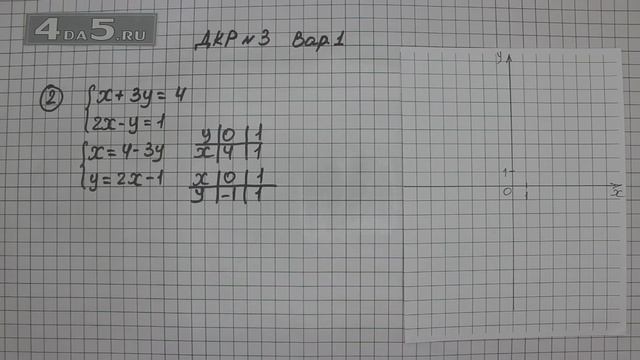 4DA5.RU
ДКР №3 Вар 1
② { x + 3y = 4
2x - y = 1
{ x = 4 - 3y
y = 2x - 1
y | 0 | 1
x | 4 | 1
x | 0 | 1
y | -1 | 1
y
1
0
x